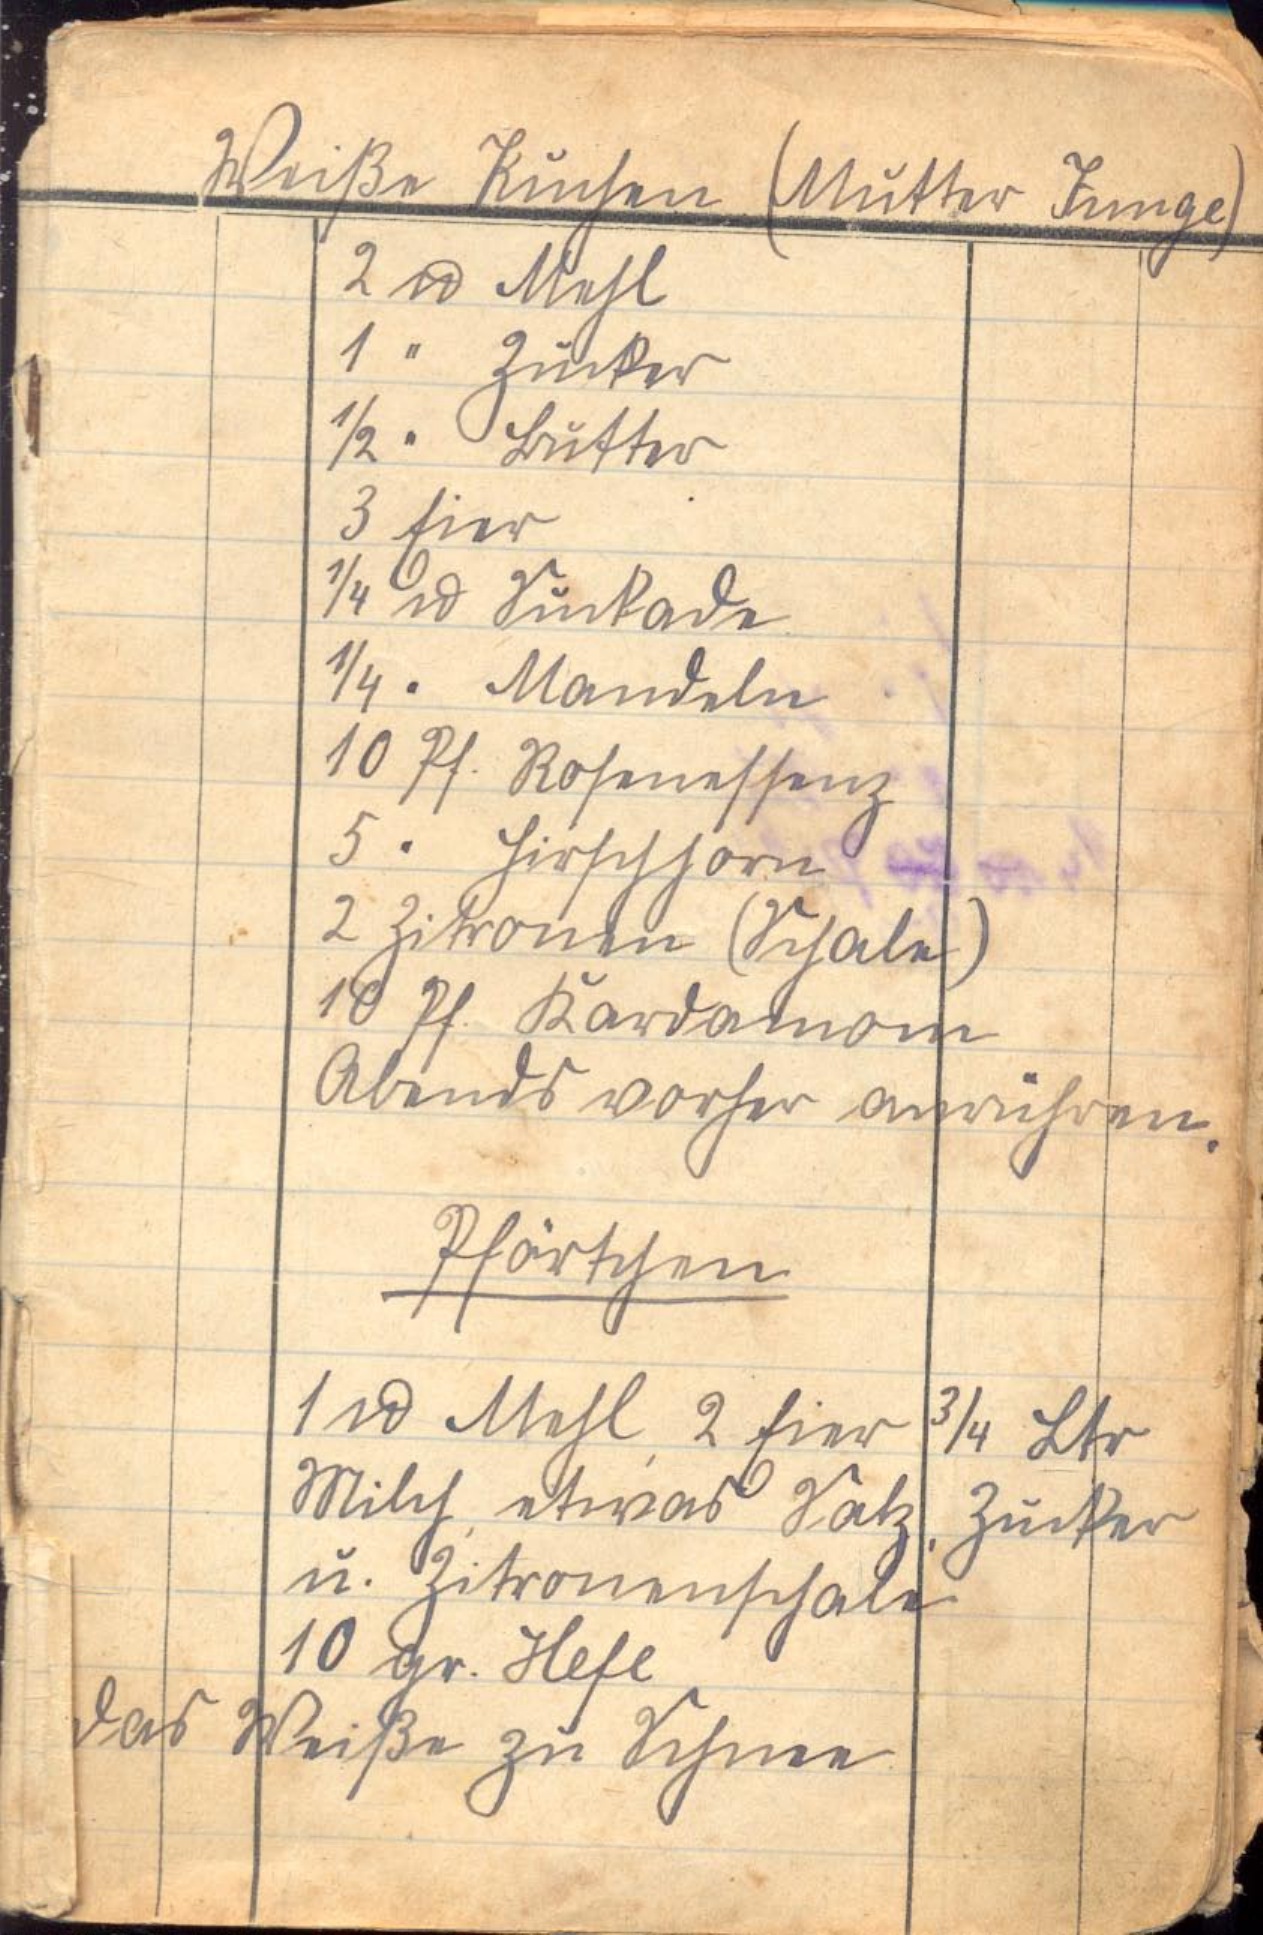 Weiße Kuchen (Mutter Junge)
2 ℔ Mehl
1 " Zucker
1/2 " Butter
3 Eier
1/4 ℔ Suckade
1/4 " Mandeln
10 Pf. Rosenessenz
5 " Hirschhorn
2 Zitronen (Schale)
10 Pf. Kardamom
Abends vorher anrühren.
Pförtchen
1 ℔ Mehl, 2 Eier 3/4 Ltr
Milch, etwas Salz, Zucker
u. Zitronenschale
10 gr. Hefe
das Weiße zu Schnee